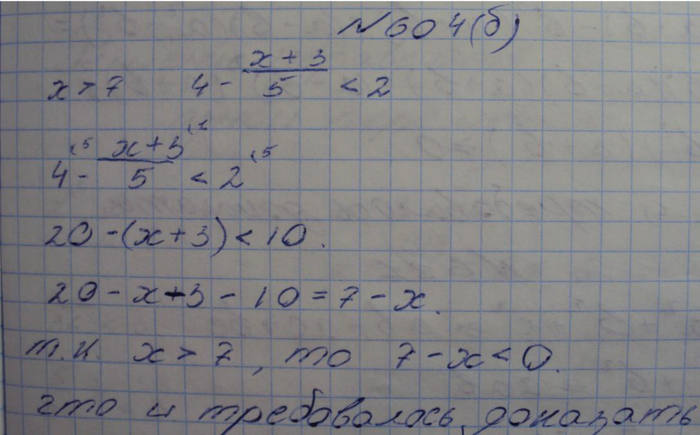 №604(б)
x > 7 4 - \frac{x+3}{5} < 2
4^{\5} - \frac{x+3}{5}^{\1} < 2^{\5}
20-(x+3)<10.
20-x-3-10=7-x.
т.к x > 7, то 7-x<0.
что и требовалось доказать